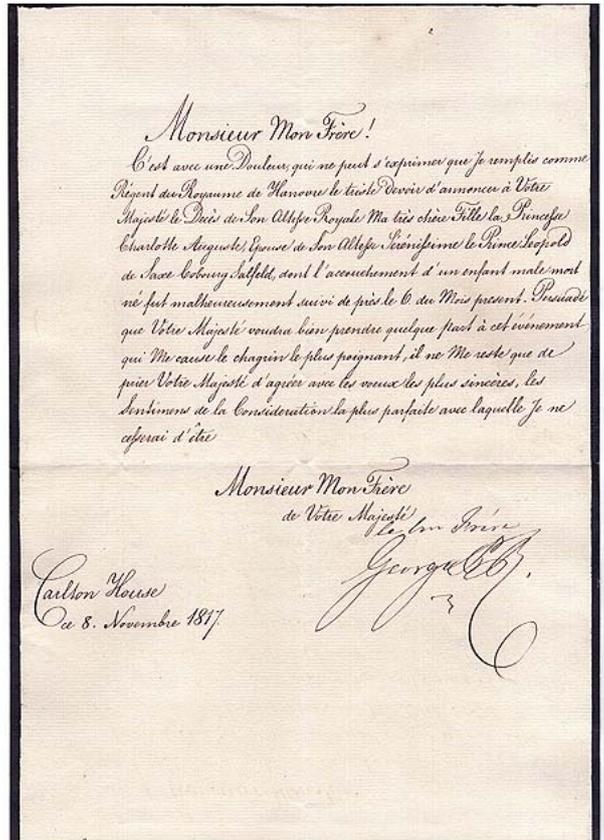 Monsieur Mon Frère!
C'est avec une Douleur, qui ne peut s'exprimer que Je remplis comme
Régent du Royaume de Hanovre le triste devoir d'annoncer à Votre
Majesté le Decès de Son Altesse Royale Ma très chère Fille la Princesse
Charlotte Auguste, Epouse de Son Altesse Sérénissime le Prince Leopold
de Saxe Cobourg Salfeld, dont l'accouchement d'un enfant male mort
né fut malheureusement suivi de près le 6 du Mois present. Persuadé
que Votre Majesté voudra bien prendre quelque part à cet événement
qui Me cause le chagrin le plus poignant, il ne Me reste que de
prier Votre Majesté d'agréer avec les voeux les plus sincères, les
Sentimens de la Consideration la plus parfaite avec laquelle Je ne
cesserai d'être
Monsieur Mon Frère
de Votre Majesté
le bon Frére
George P R.
Carlton House
ce 8. Novembre 1817.